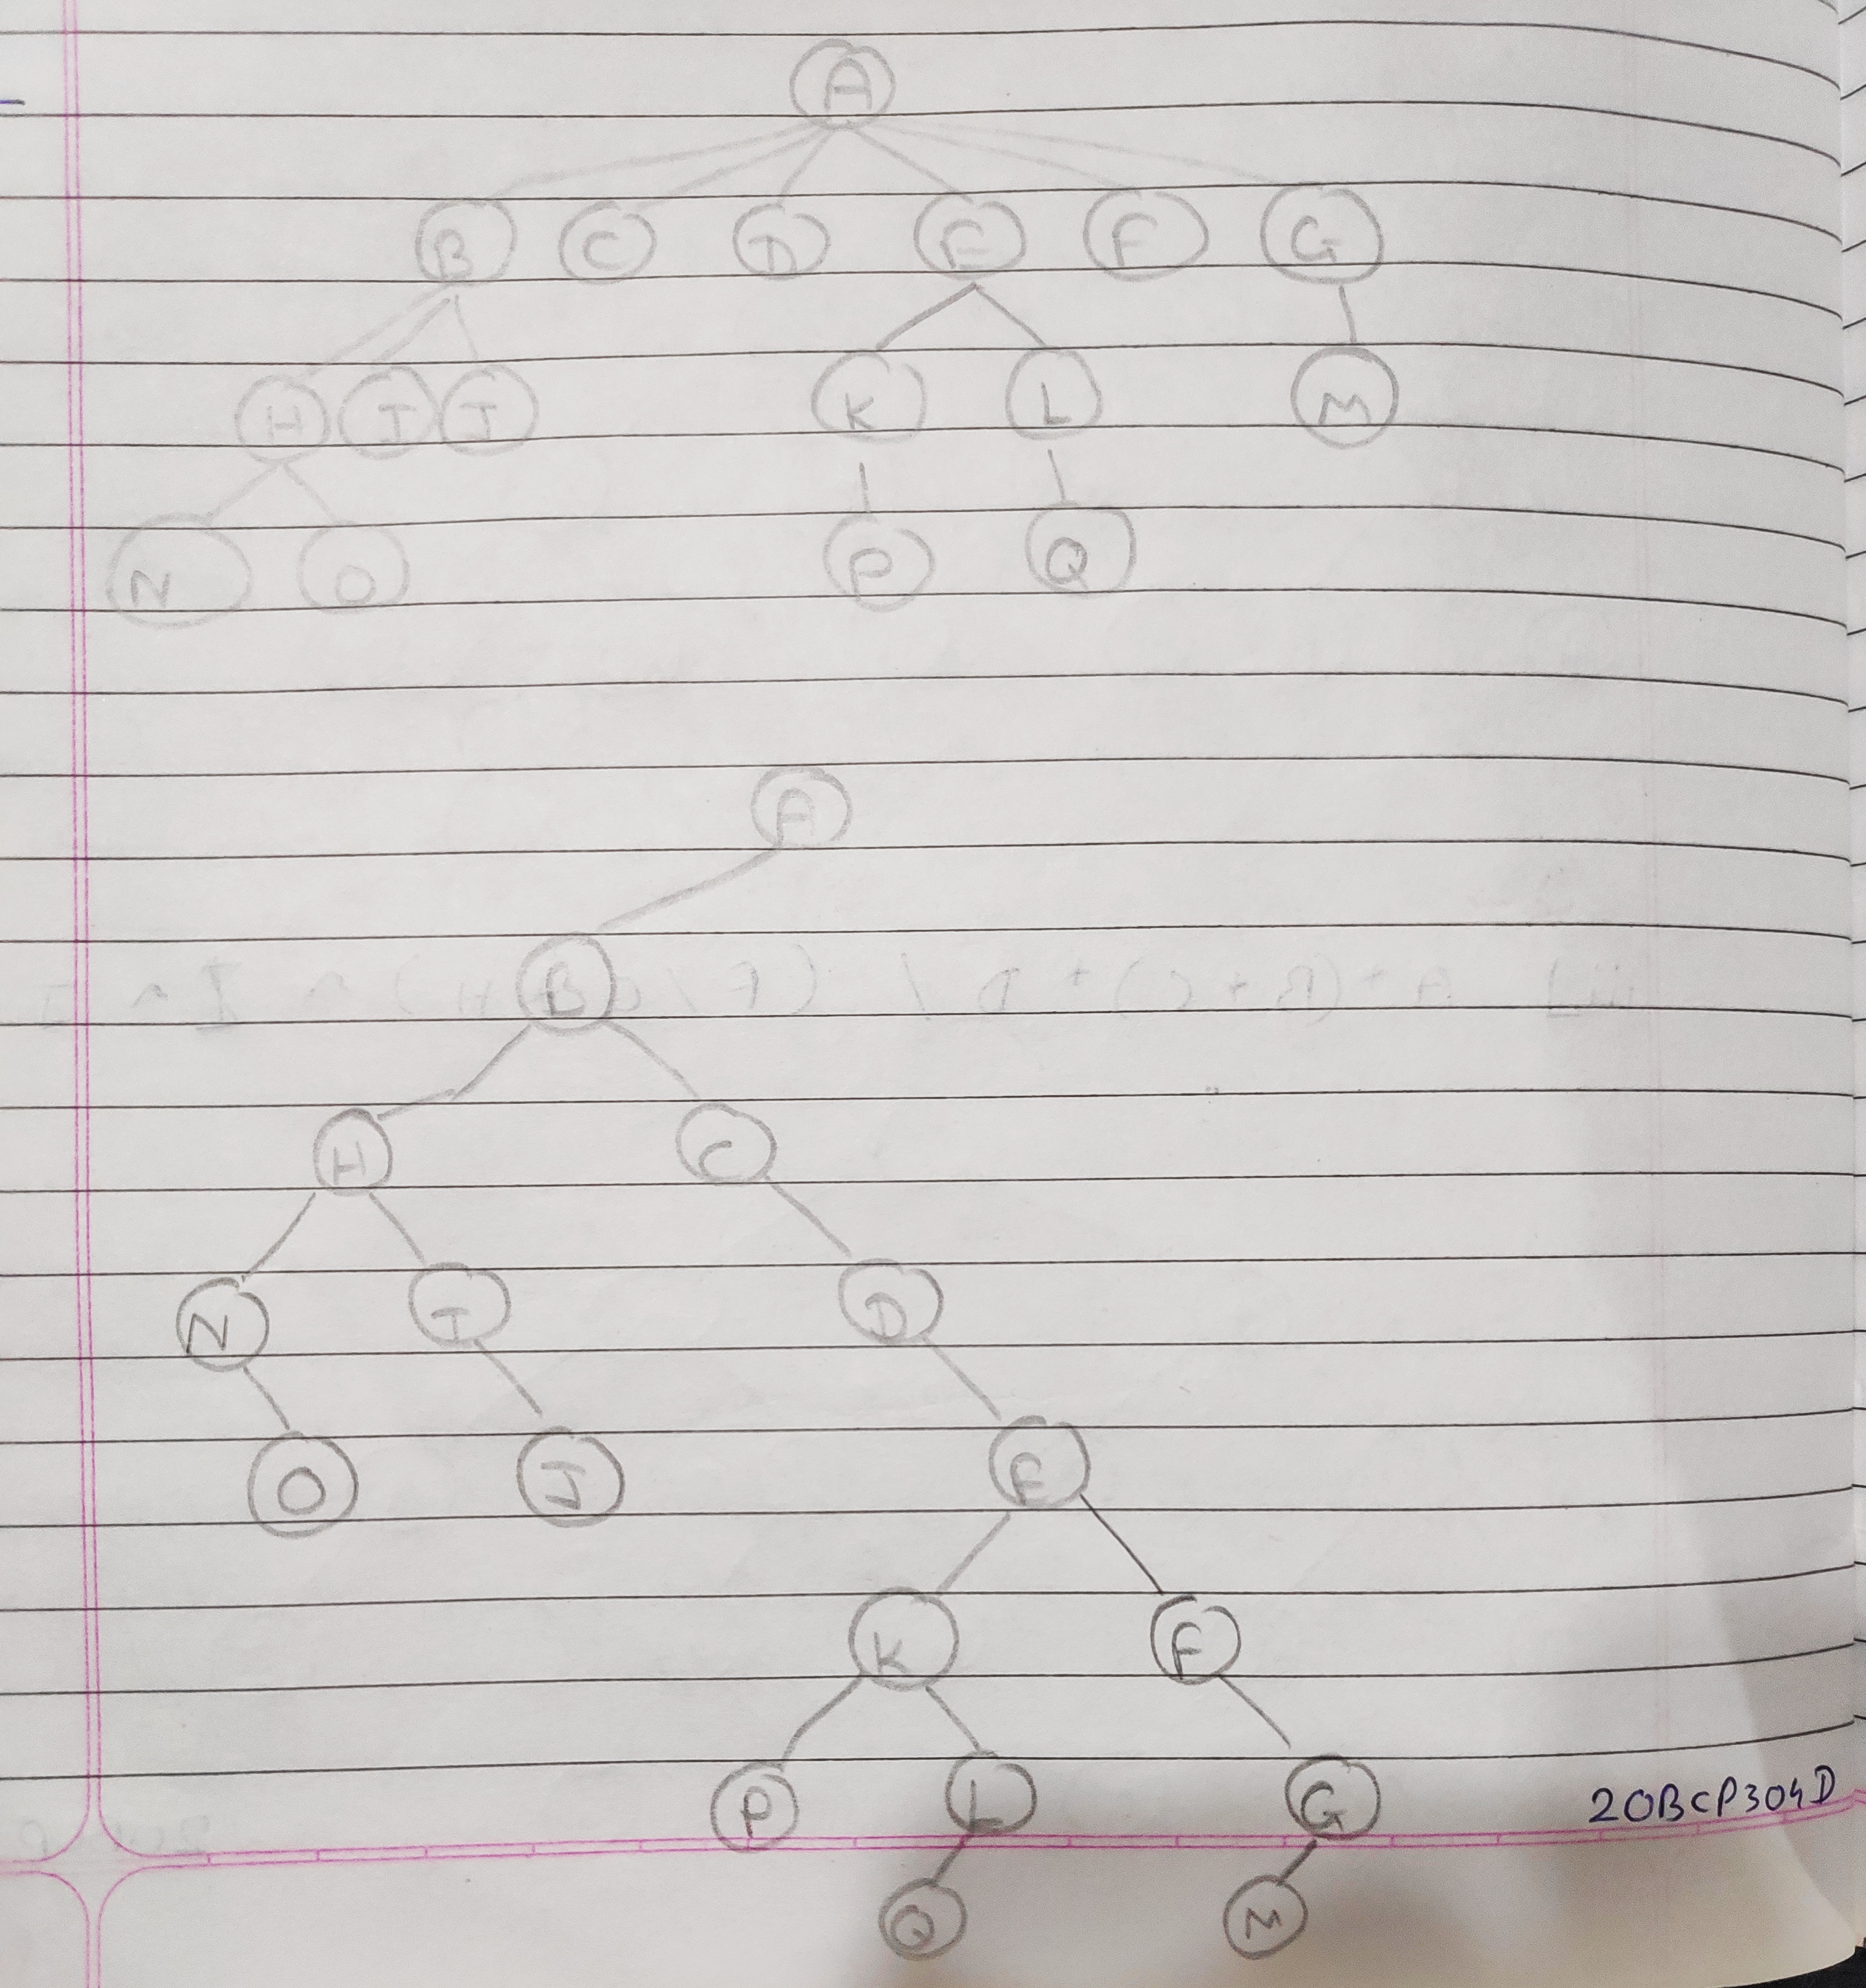 A
B C D E F G
H I J K L M
N O P Q
A
B
H C
N I D
O J E
K F
P L G
20BCP304D
Q M